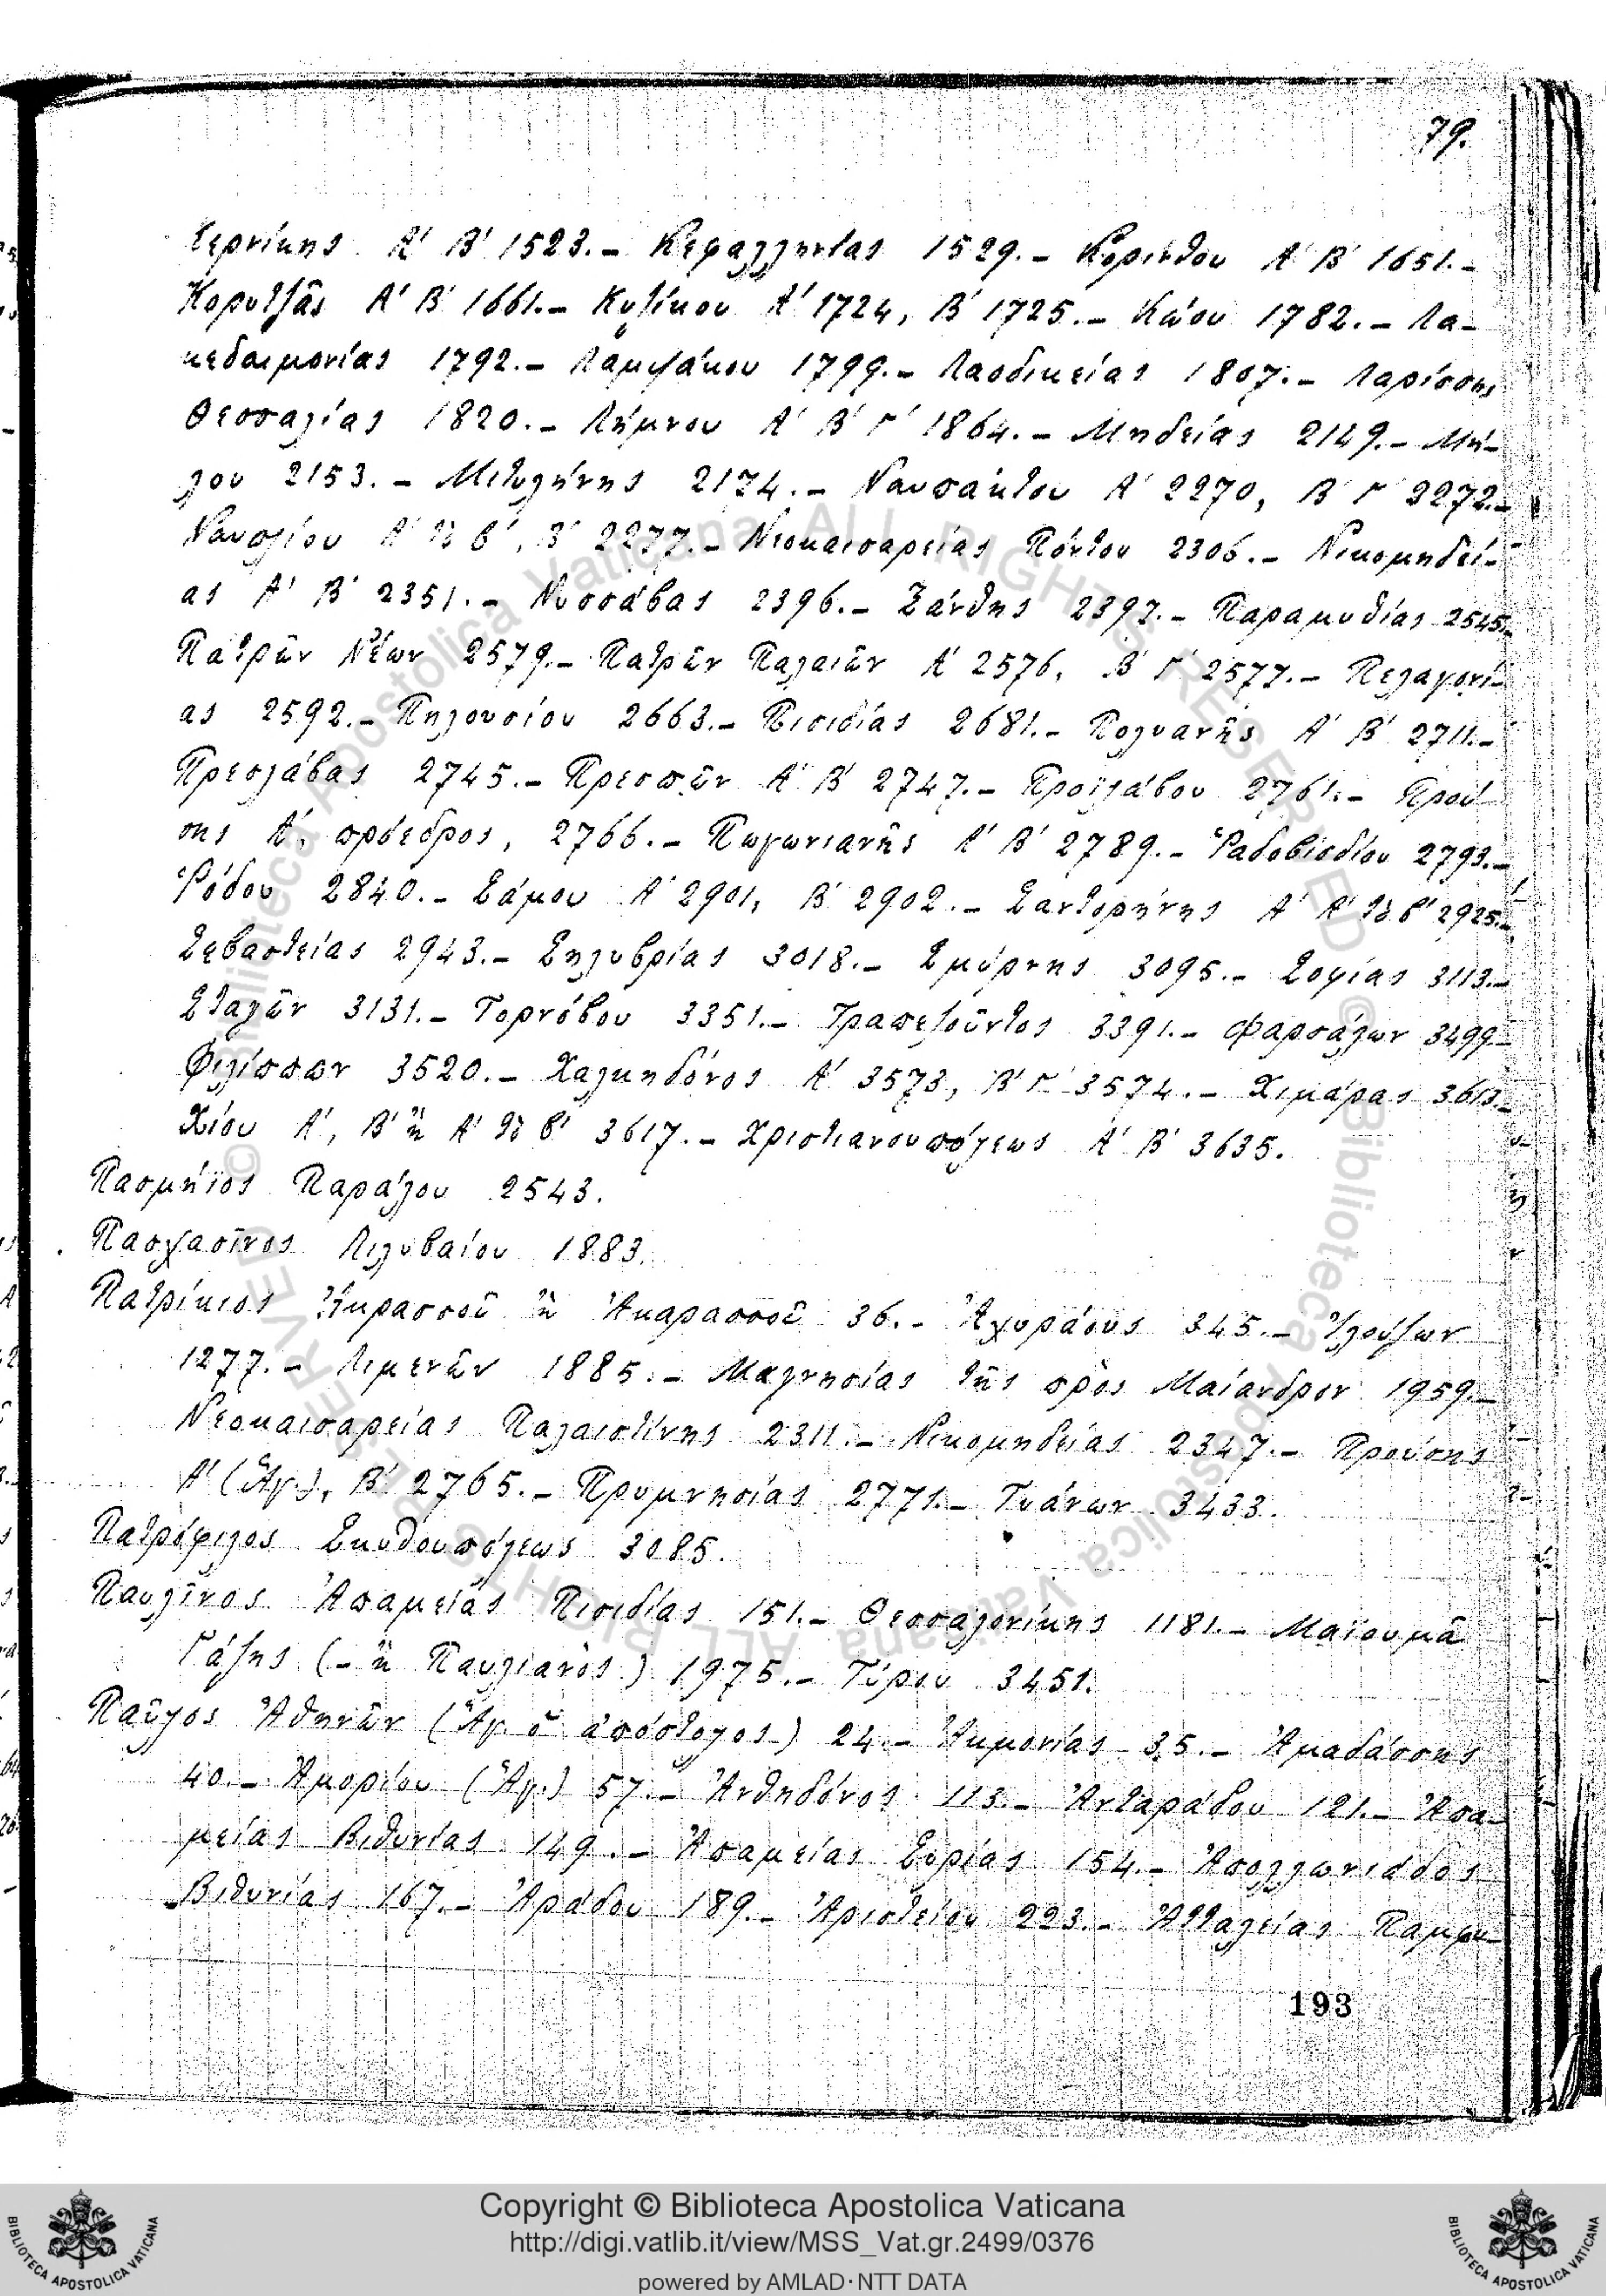 79.
τερνίκης Α΄ Β΄ 1523.– Κεφαλληνίας 1529.– Κορίνθου Α΄ Β΄ 1651.–
Κορυτζᾶς Α΄ Β΄ 1661.– Κυζίκου Α΄ 1724, Β΄ 1725.– Κώου 1782.– Λα–
κεδαιμονίας 1792.– Λαμψάκου 1799.– Λαοδικείας 1807.– Λαρίσσης
Θεσσαλίας 1820.– Λήμνου Α΄ Β΄ Γ΄ 1864.– Μηδείας 2149.– Μή–
λου 2153.– Μιτυλήνης 2174.– Ναυπάκτου Α΄ 2270, Β΄ Γ΄ 2272.–
Ναυπλίου Α΄ τὸ β΄, Β΄ 2277.– Νεοκαισαρείας Πόντου 2306.– Νικομηδεί–
ας Α΄ Β΄ 2351.– Νυσσάβας 2396.– Ξάνθης 2397.– Παραμυθίας 2545.–
Πατρῶν Νέων 2579.– Πατρῶν Παλαιῶν Α΄ 2576, Β΄ Γ΄ 2577.– Πελαγονί–
ας 2592.– Πηλουσίου 2663.– Πισιδίας 2681.– Πολυανῆς Α΄ Β΄ 2711.–
Πρεσλάβας 2745.– Πρεσπῶν Α΄ Β΄ 2747.– Προϊλάβου 2761.– Πρού–
σης Α΄, πρόεδρος, 2766.– Πωγωνιανῆς Α΄ Β΄ 2789.– Ῥαδοβισδίου 2793.–
Ῥόδου 2840.– Σάμου Α΄ 2901, Β΄ 2902.– Σαντορήνης Α΄ Α΄ τὸ β΄ 2925.–
Σεβαστείας 2943.– Σηλυβρίας 3018.– Σμύρνης 3095.– Σοφίας 3113.–
Σταγῶν 3131.– Τορνόβου 3351.– Τραπεζοῦντος 3391.– Φαρσάλων 3499.–
Φιλίππων 3520.– Χαλκηδόνος Α΄ 3573, Β΄ Γ΄ 3574.– Χιμάρας 3613.–
Χίου Α΄, Β΄ ἢ Α΄ τὸ β΄ 3617.– Χριστιανουπόλεως Α΄ Β΄ 3635.
Πασμήϊος Παράλου 2543.
Πασχασῖνος Λιλυβαίου 1883.
Πατρίκιος Ἀκρασσοῦ ἢ Ἀκαρασσοῦ 36.– Ἀχυράους 345.– Ἰλούζων
1277.– Λιμενῶν 1885.– Μαγνησίας τῆς πρὸς Μαίανδρον 1959.–
Νεοκαισαρείας Παλαιστίνης 2311.– Νικομηδείας 2347.– Προύσης
Α΄ (Ἅγ.), Β΄ 2765.– Πρυμνησίας 2771.– Τυάνων 3433.
Πατρόφιλος Σκυθουπόλεως 3085.
Παυλῖνος Ἀπαμείας Πισιδίας 151.– Θεσσαλονίκης 1181.– Μαϊουμᾶ
Γάζης (– ἢ Παυλιανὸς) 1975.– Τύρου 3451.
Παῦλος Ἀθηνῶν (Ἅγ. ὁ ἀπόστολος) 24.– Ἀκμονίας 35.– Ἀμαδάσσης
40.– Ἀμορίου (Ἅγ.) 57.– Ἀνθηδόνος 113.– Ἀνταράδου 121.– Ἀπα–
μείας Βιθυνίας 149.– Ἀπαμείας Συρίας 154.– Ἀπολλωνιάδος
Βιθυνίας 167.– Ἀράδου 189.– Ἀριστείου 223.– Ἀτταλείας Παμφυ–
193
Copyright © Biblioteca Apostolica Vaticana
http://digi.vatlib.it/view/MSS_Vat.gr.2499/0376
powered by AMLAD·NTT DATA